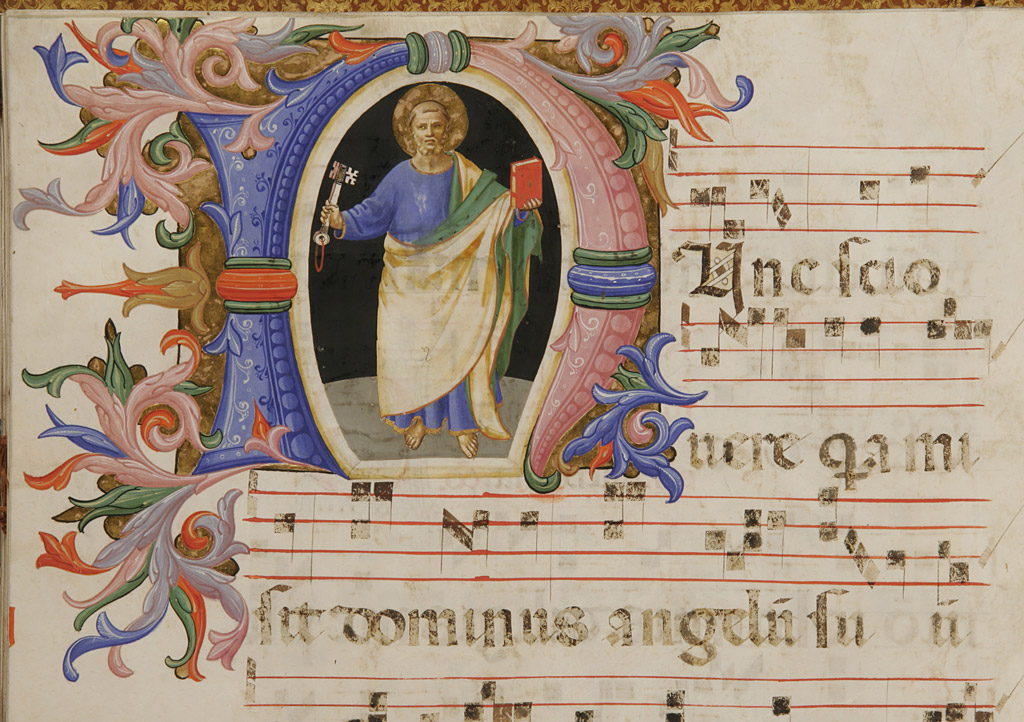 NUnc scio
uere qa mi
sit dominus angelū su ū